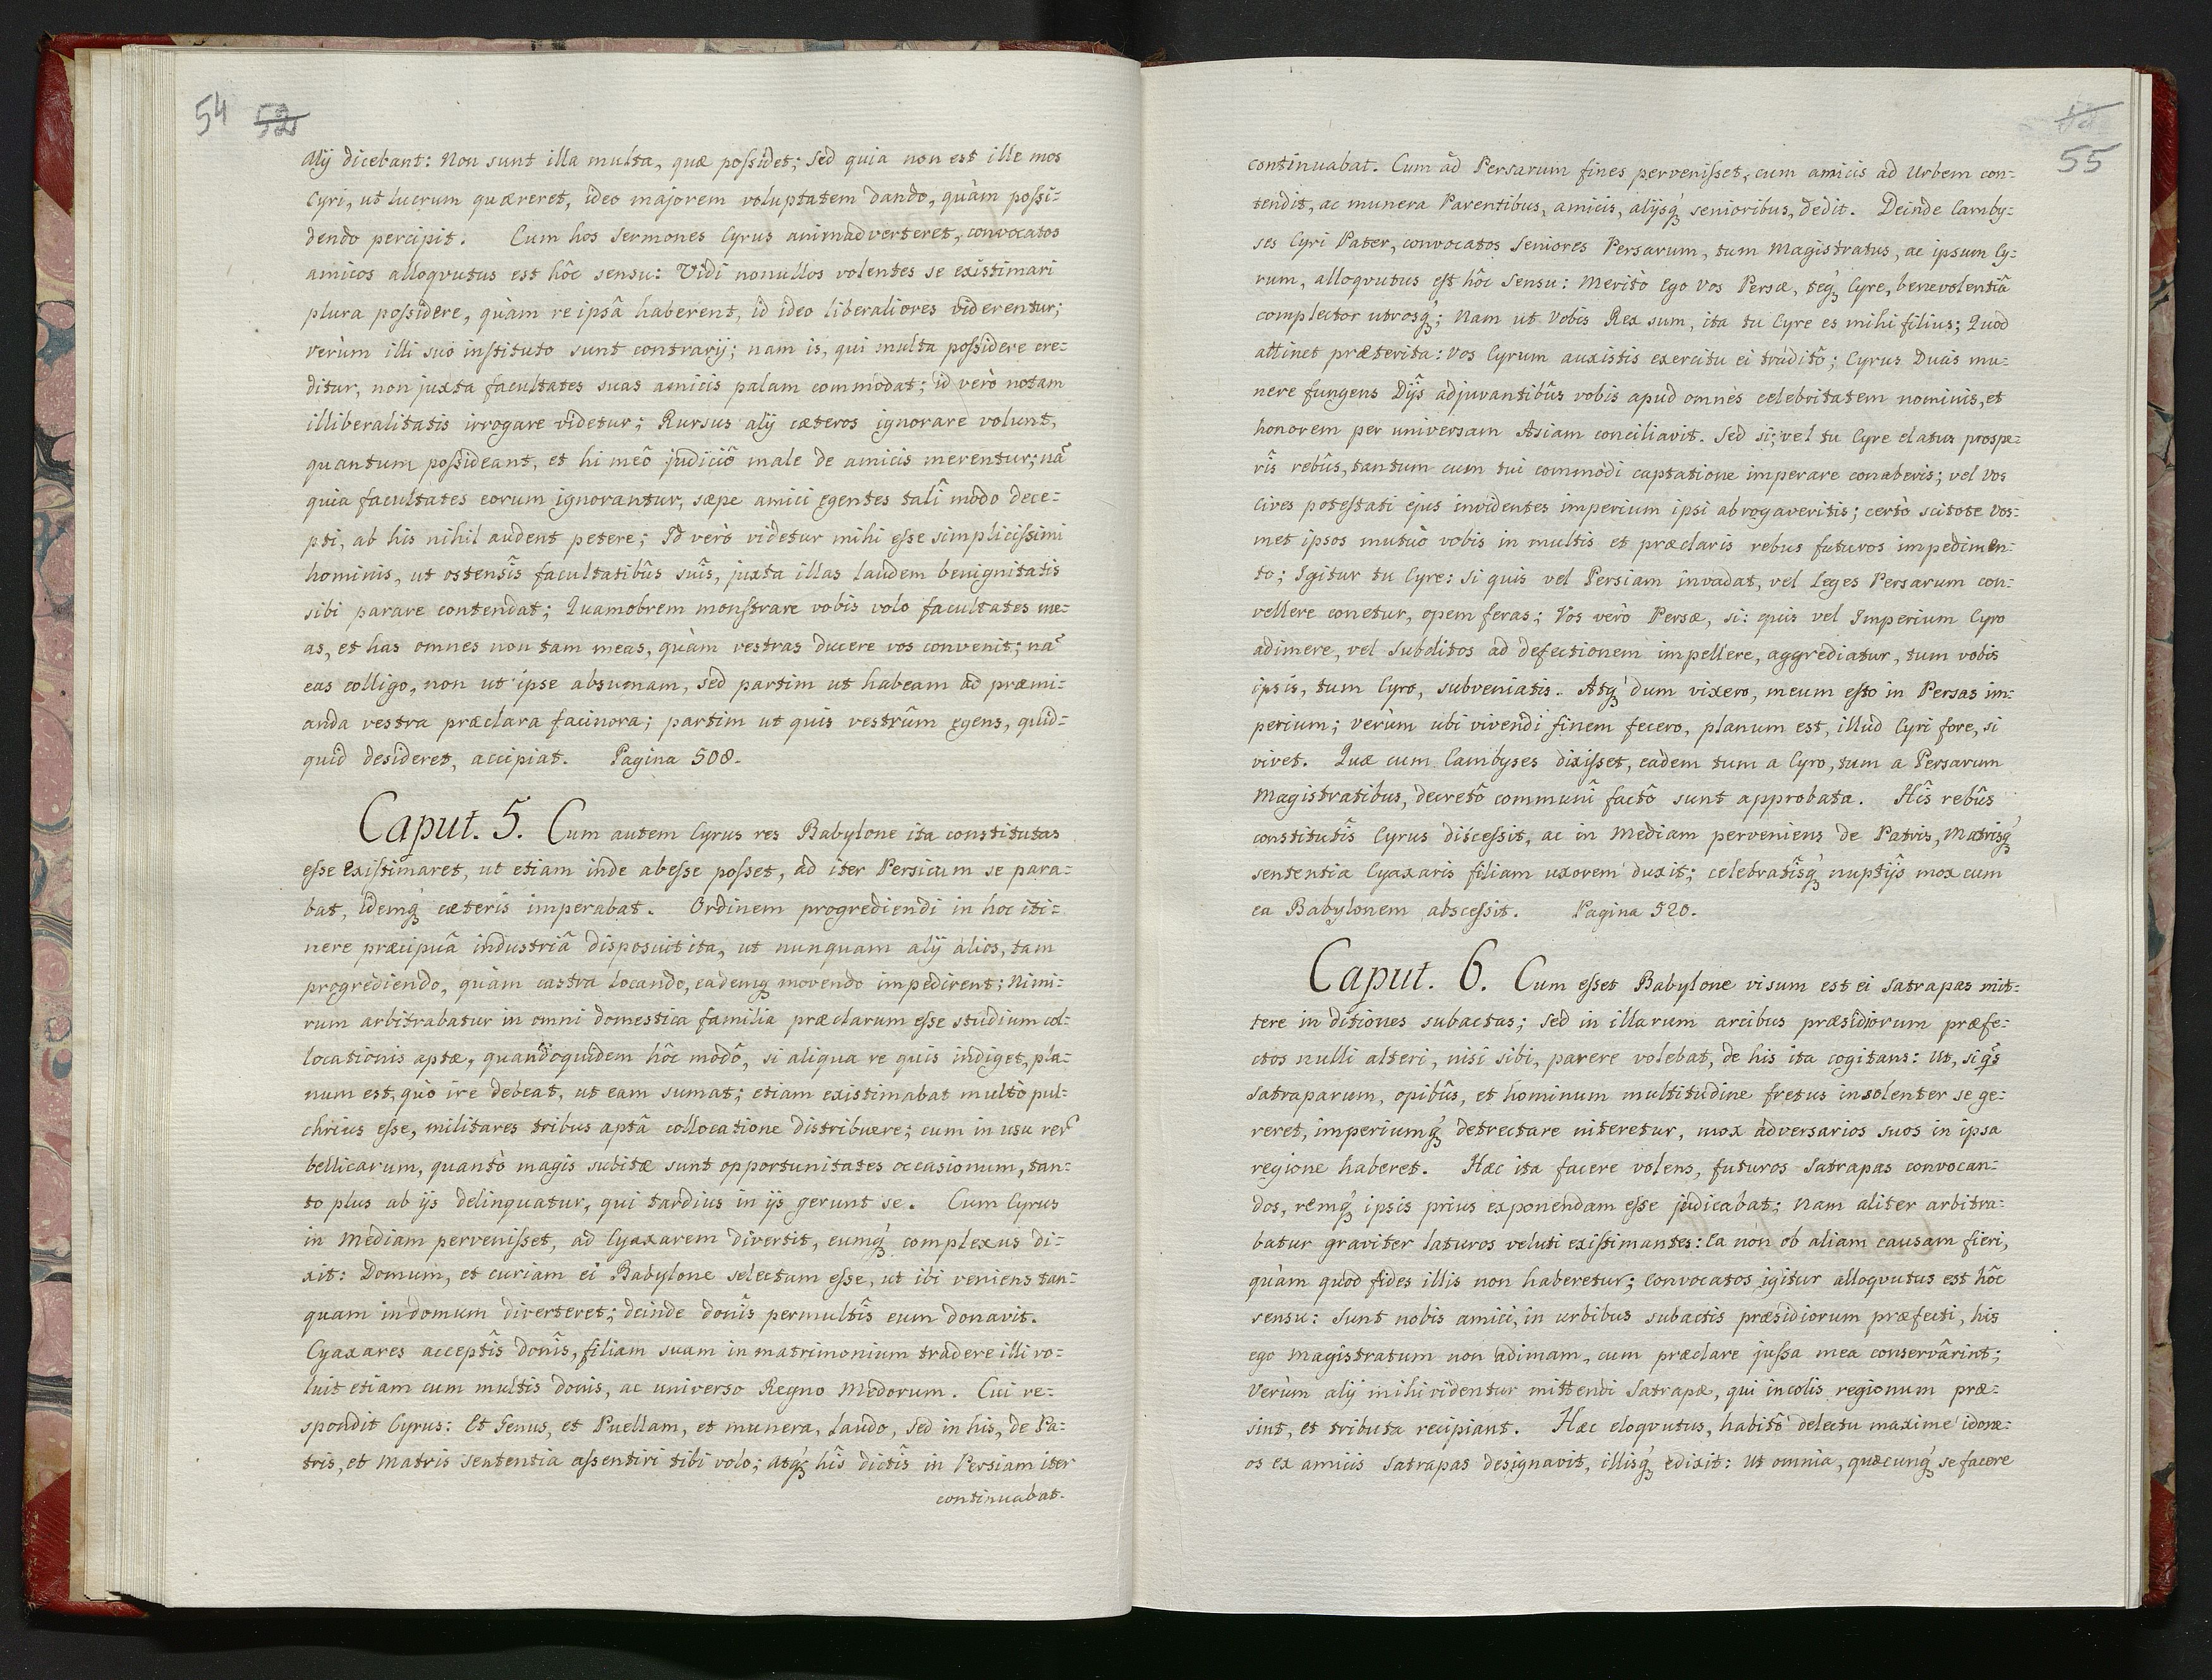 54 52
Alij dicebant: Non sunt illa multa, quæ possidet; sed quia non est ille mos
Cyri, ut lucrum quæreret, ideo majorem voluptatem dando, quàm possi-
dendo percipit. Cum hos sermones Cyrus animadverteret, convocatos
amicos alloqvutus est hôc sensu: Vidi nonullos volentes se existimari
plura possidere, quàm re ipsâ haberent, id ideo liberaliores viderentur;
verùm illi suo instituto sunt contrarij; nam is, qui multa possidere cre-
ditur, non juxta facultates suas amicis palam commodat; id verò notam
illiberalitatis irrogare videtur; Rursus alij cæteros ignorare volunt,
quantum possideant, et hi meô judiciô male de amicis merentur; nã
quia facultates eorum ignorantur, sæpe amici egentes talî modo dece-
pti, ab his nihil audent petere; Id verò videtur mihi esse simplicissimi
hominis, ut ostensîs facultatibûs suîs, juxta illas laudem benignitatis
sibi parare contendat; Quamobrem monstrare vobis volo facultates me-
as, et has omnes non tam meas, quàm vestras ducere vos convenit; nã
eas colligo, non ut ipse absumam, sed partim ut habeam ad præmi-
anda vestra præclara facinora; partim ut quis vestrûm egens, quid-
quid desideret, accipiat. Pagina 508.
Caput. 5. Cum autem Cyrus res Babylone ita constitutas
esse existimaret, ut etiam inde abesse posset, ad iter Persicum se para-
bat, idemq́ cæteris imperabat. Ordinem progrediendi in hoc iti-
nere præcipuâ industriâ disposuit ita, ut nunquam alij alios, tam
progrediendo, quàm castra locando, eademq́ movendo impedirent; Nimi-
rum arbitrabatur in omni domestica familia præclarum esse studium col-
locationis aptæ, quandoquidem hôc modô, si aliqua re quis indiget, pla-
num est, quò ire debeat, ut eam sumat; etiam existimabat multò pul-
chrius esse, militares tribus aptâ collocatione distribuere; cum in usu rer̃
bellicarum, quantò magis subitæ sunt opportunitates occasionum, tan-
to plus ab ijs delinquatur, qui tardius in ijs gerunt se. Cum Cyrus
in Mediam pervenisset, ad Cyaxarem divertit, eumq́ complexus di-
xit: Domum, et curiam ei Babylone selectam esse, ut ibi veniens tan-
quam in domum diverteret; deinde donîs permultîs eum donavit.
Cyaxares acceptîs donîs, filiam suam in matrimonium tradere illi vo-
luit etiam cum multis donis, ac universo Regno Medorum. Cui re-
spondit Cyrus: Et Genus, et Puellam, et munera, laudo, sed in his, de Pa-
tris, et Matris sententia assentiri tibi volo; atq́ hîs dictîs in Persiam iter
continuabat.
55
continuabat. Cum ad Persarum fines pervenisset, cum amicis ad Urbem con-
tendit, ac munera Parentibus, amicis, alijsq́ senioribus, dedit. Deinde Camby-
ses Cyri Pater, convocatos Seniores Persarum, tum Magistratus, ac ipsum Cy-
rum, alloqvutus est hôc sensu: Meritò Ego Vos Persæ, teq́ Cyre, benevolentiâ
complector utrosq́; Nam ut Vobis Rex sum, ita tu Cyre es mihi filius; Quod
attinet præterita: Vos Cyrum auxistis exercitu ei traditô; Cyrus Ducis mu-
nere fungens Dijs adjuvantibûs vobis apud omnes celebritatem nominis, et
honorem per universam Asiam conciliavit. Sed si; vel tu Cyre elatus prospe-
rîs rebûs, tantum cum tui commodi captatione imperare conaberis; vel Vos
Cives potestati ejus invidentes imperium ipsi abrogaveritis; certò scitote Vos-
met ipsos mutuò vobis in multis et præclaris rebus futuros impedimen-
to; Igitur tu Cyre: Si quis vel Persiam invadat, vel Leges Persarum con-
vellere conetur, opem feras; Vos verò Persæ, si: quis vel Imperium Cyro
adimere, vel subditos ad defectionem impellere, aggrediatur, tum vobis
ipsis, tum Cyro, subveniatis. Atq́ dum vixero, meum esto in Persas im-
perium; verùm ubi vivendi finem fecero, planum est, illud Cyri fore, si
vivet. Quæ cum Cambyses dixisset, eadem tum a Cyro, tum a Persarum
Magistratibus, decretô communî factô sunt approbata. Hîs rebûs
constitutîs Cyrus discessit, ac in Mediam perveniens de Patris, Matrisq́
sententia Cyaxaris filiam uxorem duxit; celebratîsq́ nuptijs mox cum
ea Babylonem abscessit. Pagina 520.
Caput. 6. Cum esset Babylone visum est ei Satrapas mit-
tere in ditiones subactas; sed in illarum arcibus præsidiorum præfe-
ctos nulli alteri, nisi sibi, parere volebat, de his ita cogitans: Ut, si q̃s
Satraparum, opibûs, et hominum multitudine fretus insolenter se ge-
reret, imperiumq́ detrectare niteretur, mox adversarios suos in ipsa
regione haberet. Hæc ita facere volens, futuros Satrapas convocan-
dos, remq́ ipsis prius exponendam esse judicabat; Nam aliter arbitra-
batur graviter laturos veluti existimantes: Ea non ob aliam causam fieri,
quàm quod fides illis non haberetur; Convocatos igitur alloqvutus est hôc
sensu: Sunt nobis amici, in urbibus subactis præsidiorum præfecti, his
ego Magistratum non adimam, cum præclare jussa mea conservârint;
Verùm alij mihi videntur mittendi Satrapæ, qui incolis regionum præ-
sint, et tributa recipiant. Hæc eloqvutus, habitô delectu maxime idone-
os ex amicis Satrapas designavit, illisq́ edixit: Ut omnia, quæcunq́ se facere